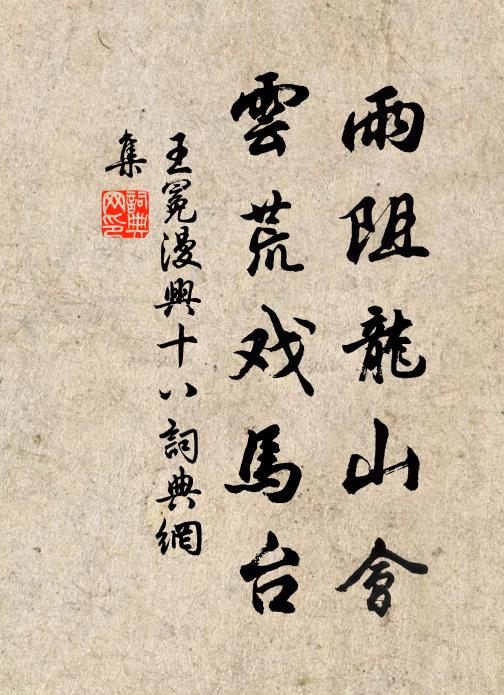 雨阻龍山會
雲荒戏馬台
王冕漫興十八詞典網
集
詞典网印